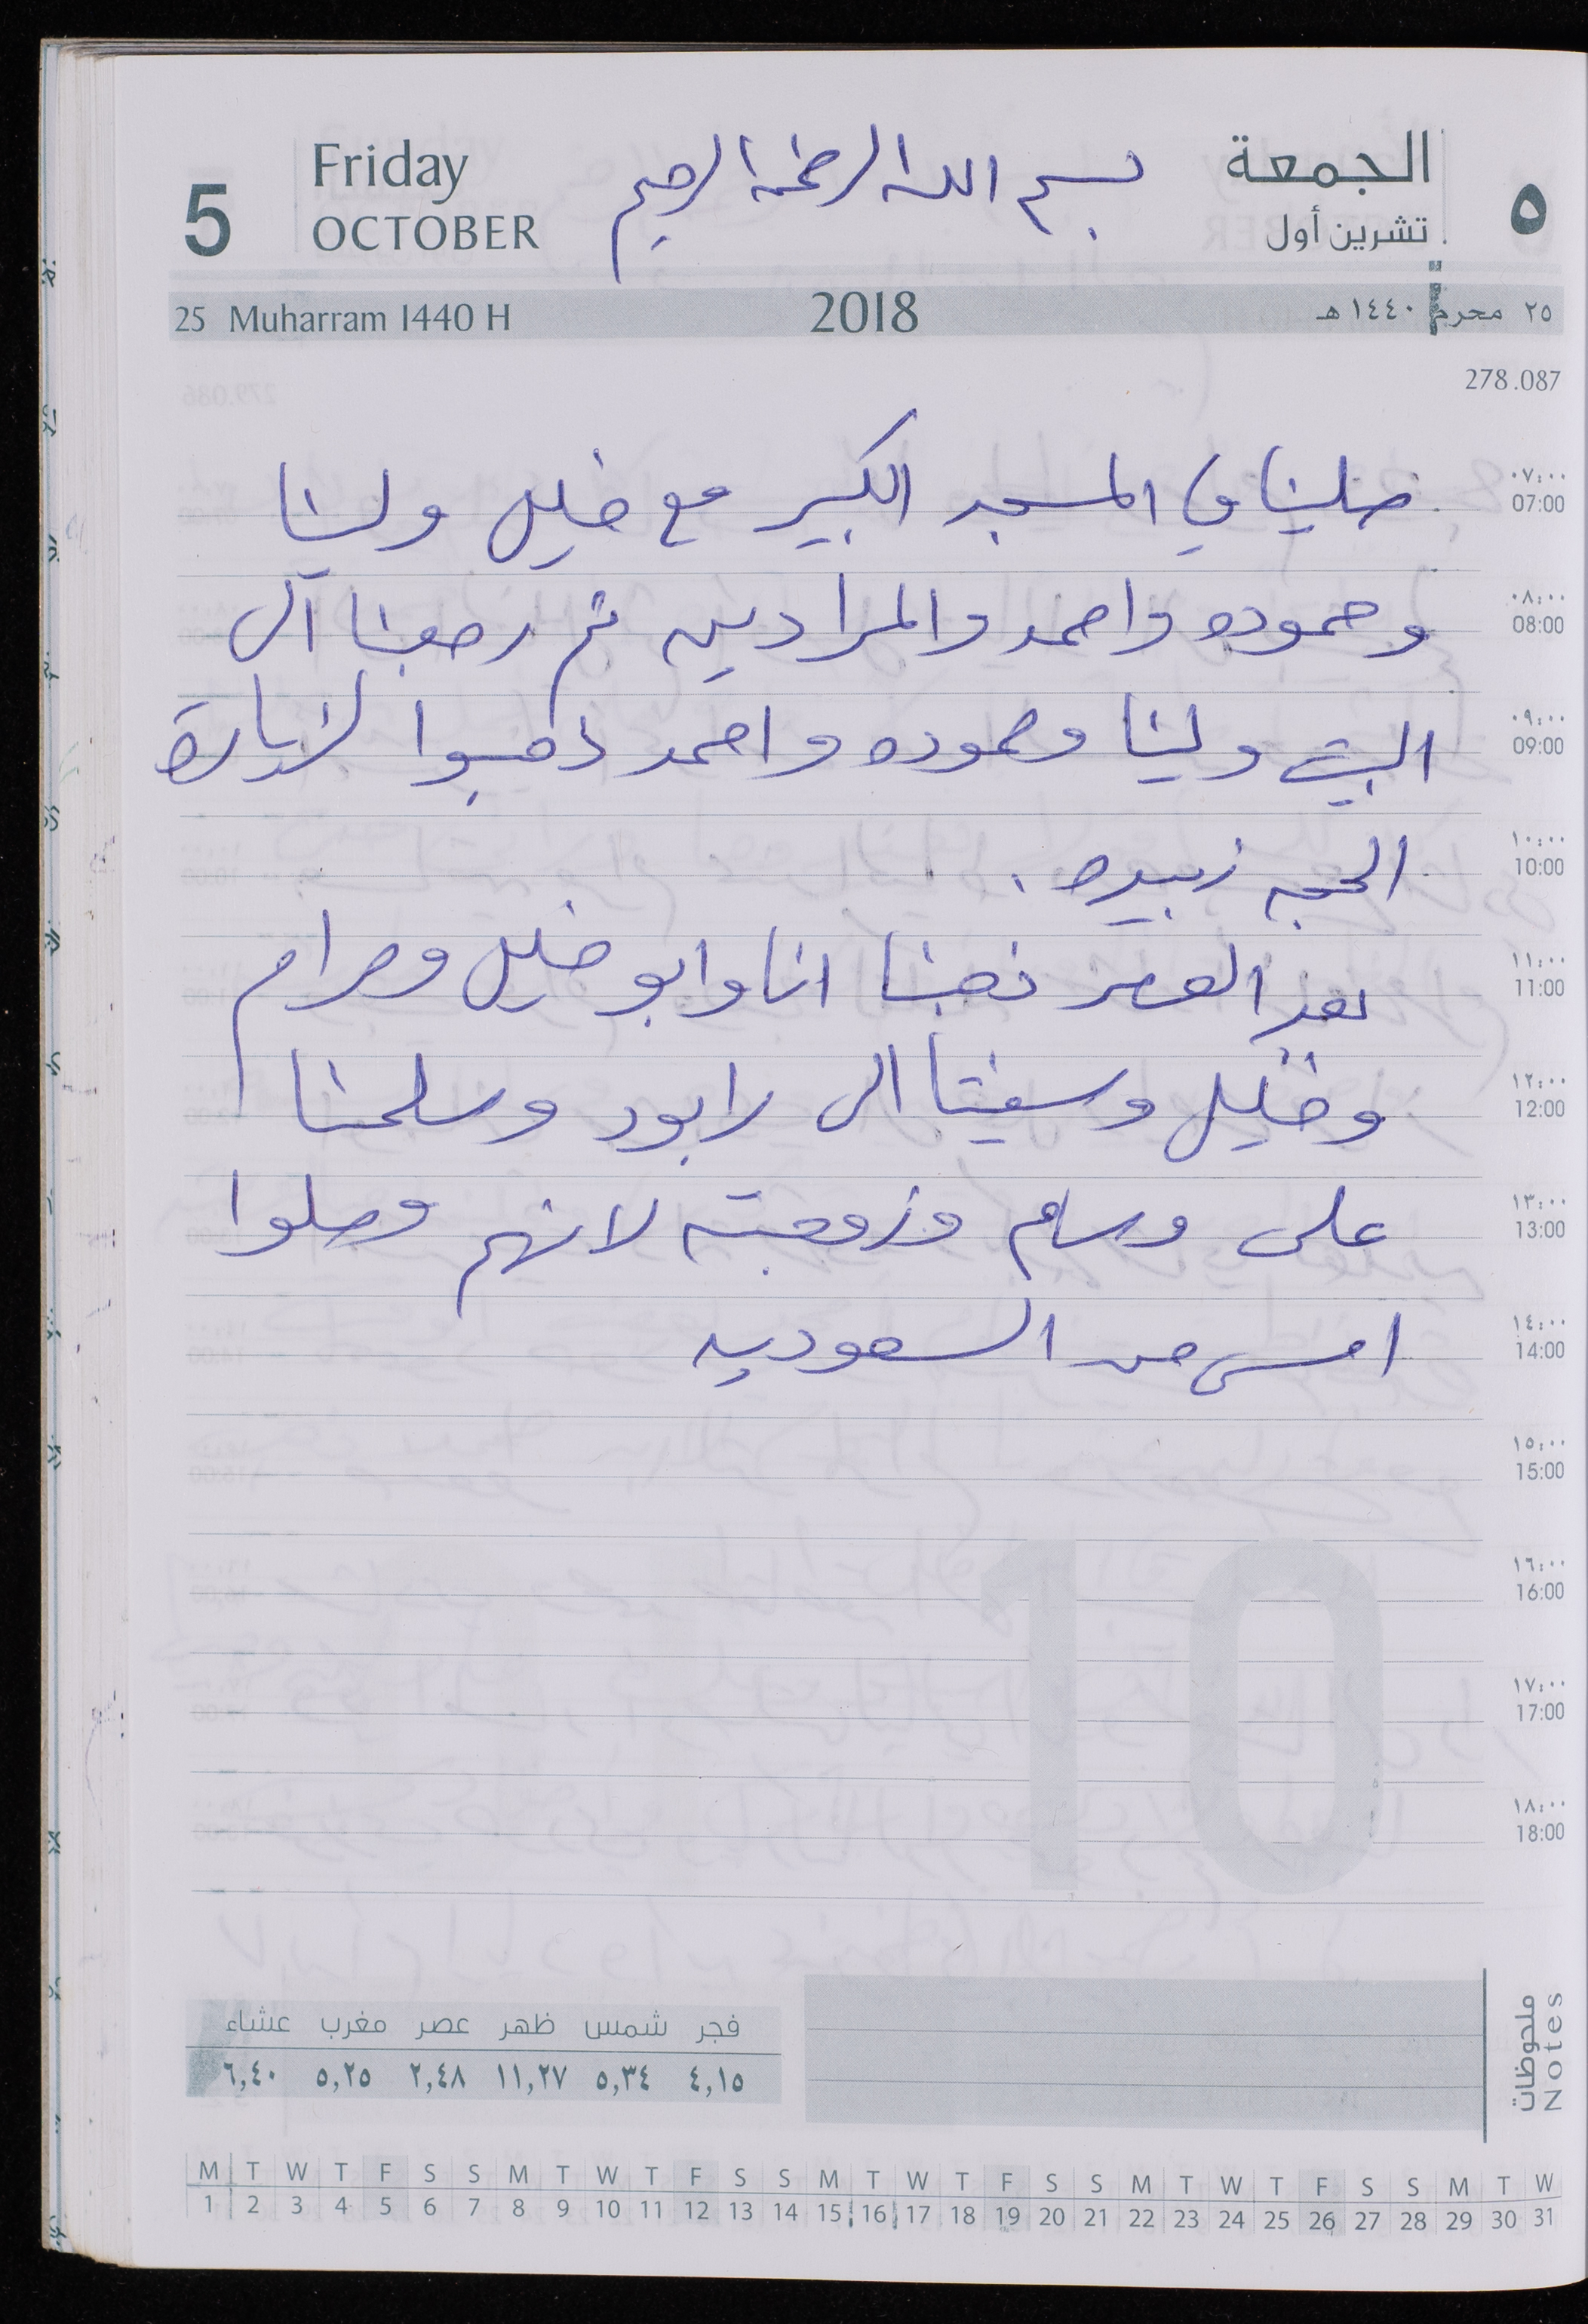 5 Friday OCTOBER بسم الله الرحمن الرحيم الجمعة تشرين أول ٥
25 Muharram 1440 H 2018 ٢٥ محرم ١٤٤٠ هـ
278.087
صلينا في المسجد الكبير مع خليل ولينا
وحموده واحمد والمرادين ثم رجعنا الى
البيت ولينا وحموده واحمد ذهبوا لزيارة
الحجه زبيده .
بعد العصر ذهبنا انا وابو خليل ومرام
وخليل وسفينا الى رابود وسلمنا
على وسام وزوجته لانهم وصلوا
امس من السعوديه
٠٧:٠٠
07:00
٠٨:٠٠
08:00
٠٩:٠٠
09:00
١٠:٠٠
10:00
١١:٠٠
11:00
١٢:٠٠
12:00
١٣:٠٠
13:00
١٤:٠٠
14:00
١٥:٠٠
15:00
١٦:٠٠
16:00
١٧:٠٠
17:00
١٨:٠٠
18:00
10
ملحوظات
Notes
فجر شمس ظهر عصر مغرب عشاء
٤,١٥ ٥,٣٤ ١١,٢٧ ٢,٤٨ ٥,٢٥ ٦,٤٠
M T W T F S S M T W T F S S M T W T F S S M T W T F S S M T W
1 2 3 4 5 6 7 8 9 10 11 12 13 14 15 16 17 18 19 20 21 22 23 24 25 26 27 28 29 30 31